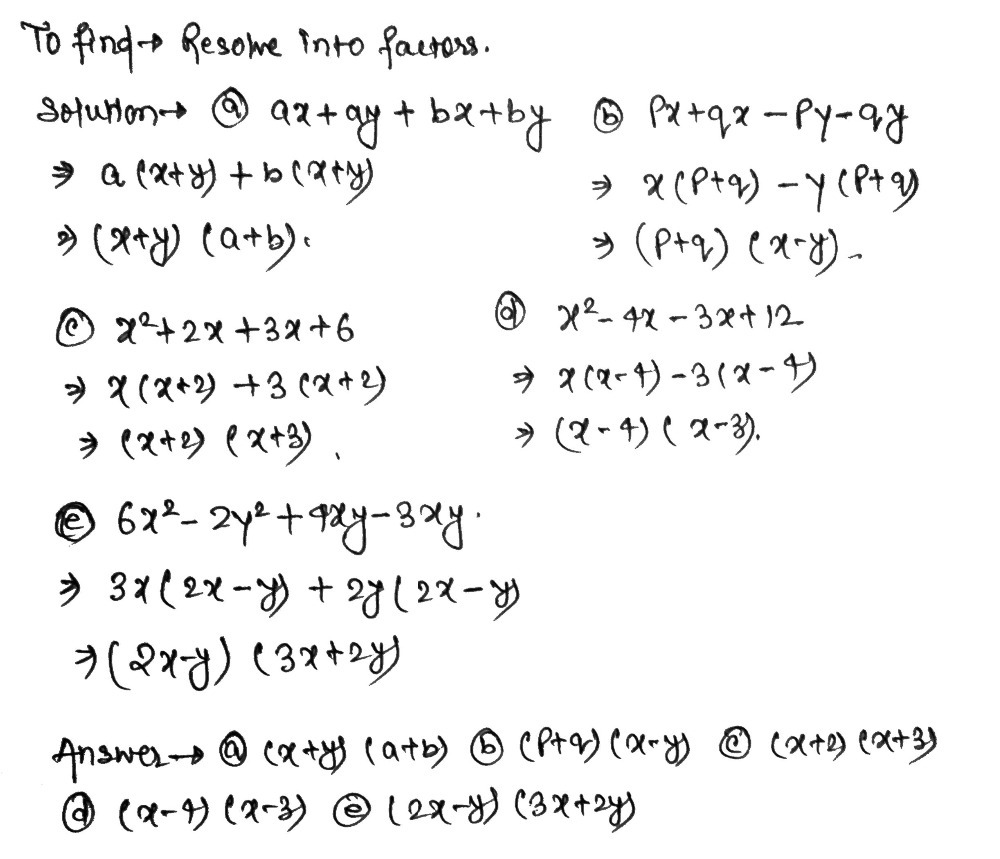 To find→ Resolve into factors.
Solution→ ⓐ ax+ay+bx+by
⇒ a(x+y)+b(x+y)
⇒ (x+y) (a+b).
ⓑ Px+qx-Py-qy
⇒ x(P+q) -y(P+q)
⇒ (P+q) (x-y).
ⓒ x²+2x+3x+6
⇒ x(x+2) +3(x+2)
⇒ (x+2) (x+3).
ⓓ x²-4x-3x+12
⇒ x(x-4)-3(x-4)
⇒ (x-4) (x-3).
ⓔ 6x²-2y²+4xy-3xy.
⇒ 3x(2x-y) + 2y(2x-y)
⇒(2x-y) (3x+2y)
Answer→ ⓐ (x+y) (a+b) ⓑ (P+q)(x-y) ⓒ (x+2) (x+3)
ⓓ (x-4) (x-3) ⓔ (2x-y) (3x+2y)